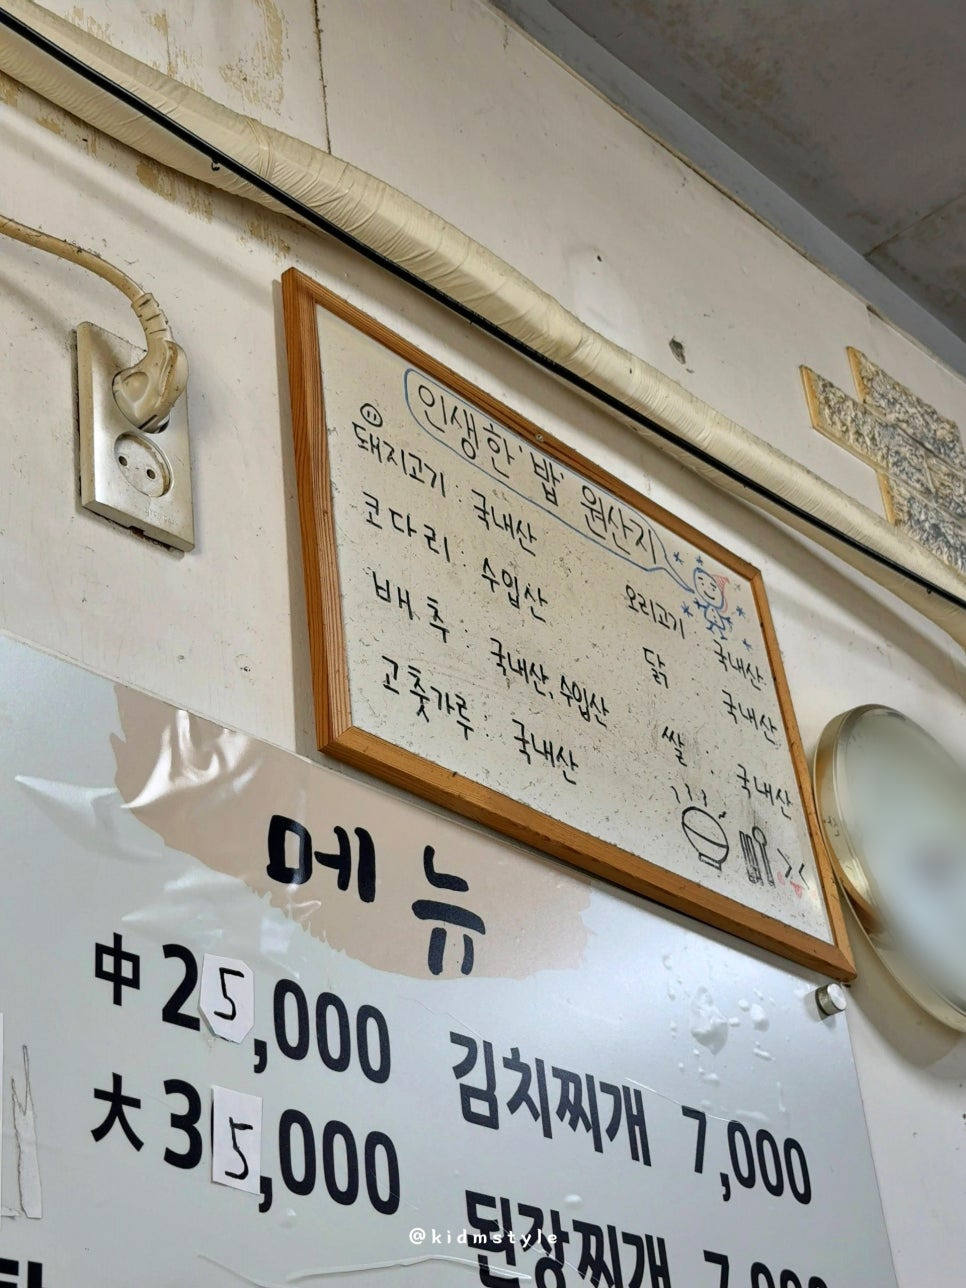 인생한'밥' 원산지
돼지고기 : 국내산
코다리 : 수입산
배추 : 국내산, 수입산
고춧가루 : 국내산
오리고기 국내산
닭 : 국내산
쌀 : 국내산
메뉴
中 25,000
大 35,000
김치찌개 7,000
된장찌개
@kidmstyle